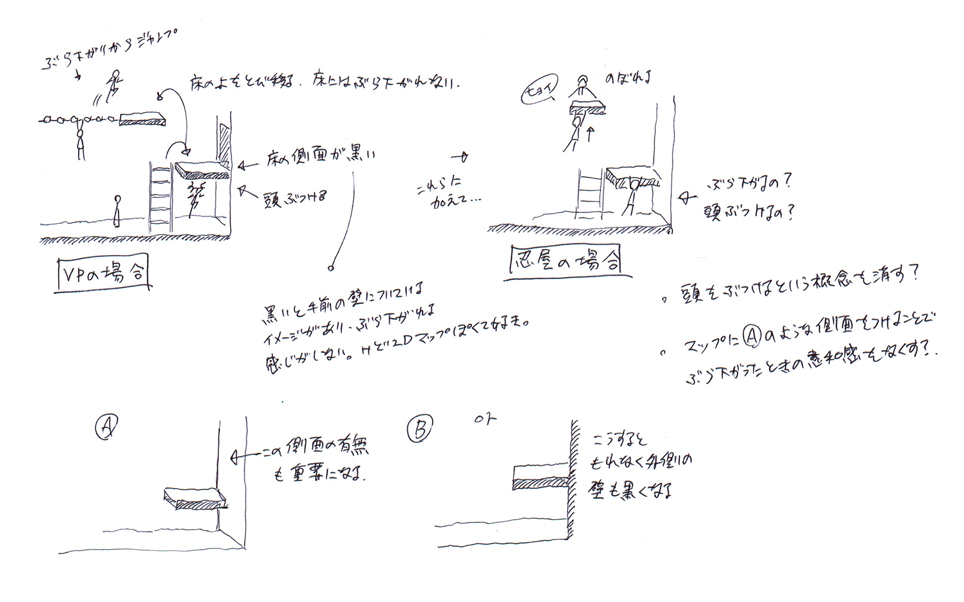 ぶら下がりからジャンプ
床の上をとび移る．床にはぶら下がれない．
床の側面が黒い
頭ぶつける
VPの場合
黒いと手前の壁についている
イメージがあり、ぶら下がれる
感じがしない。
2Dマップぽくて好き。
→
これらに
加えて…
ヒョイ
のぼれる
ぶら下がるの？
頭ぶつけるの？
忍屋の場合
。頭をぶつけるという概念を消す？
。マップにⒶのような側面をつけることで
ぶら下がったときの違和感をなくす？．
Ⓐ
この側面の有無
も重要になる．
Ⓑ
or
こうすると
もれなく外側の
壁も黒くなる